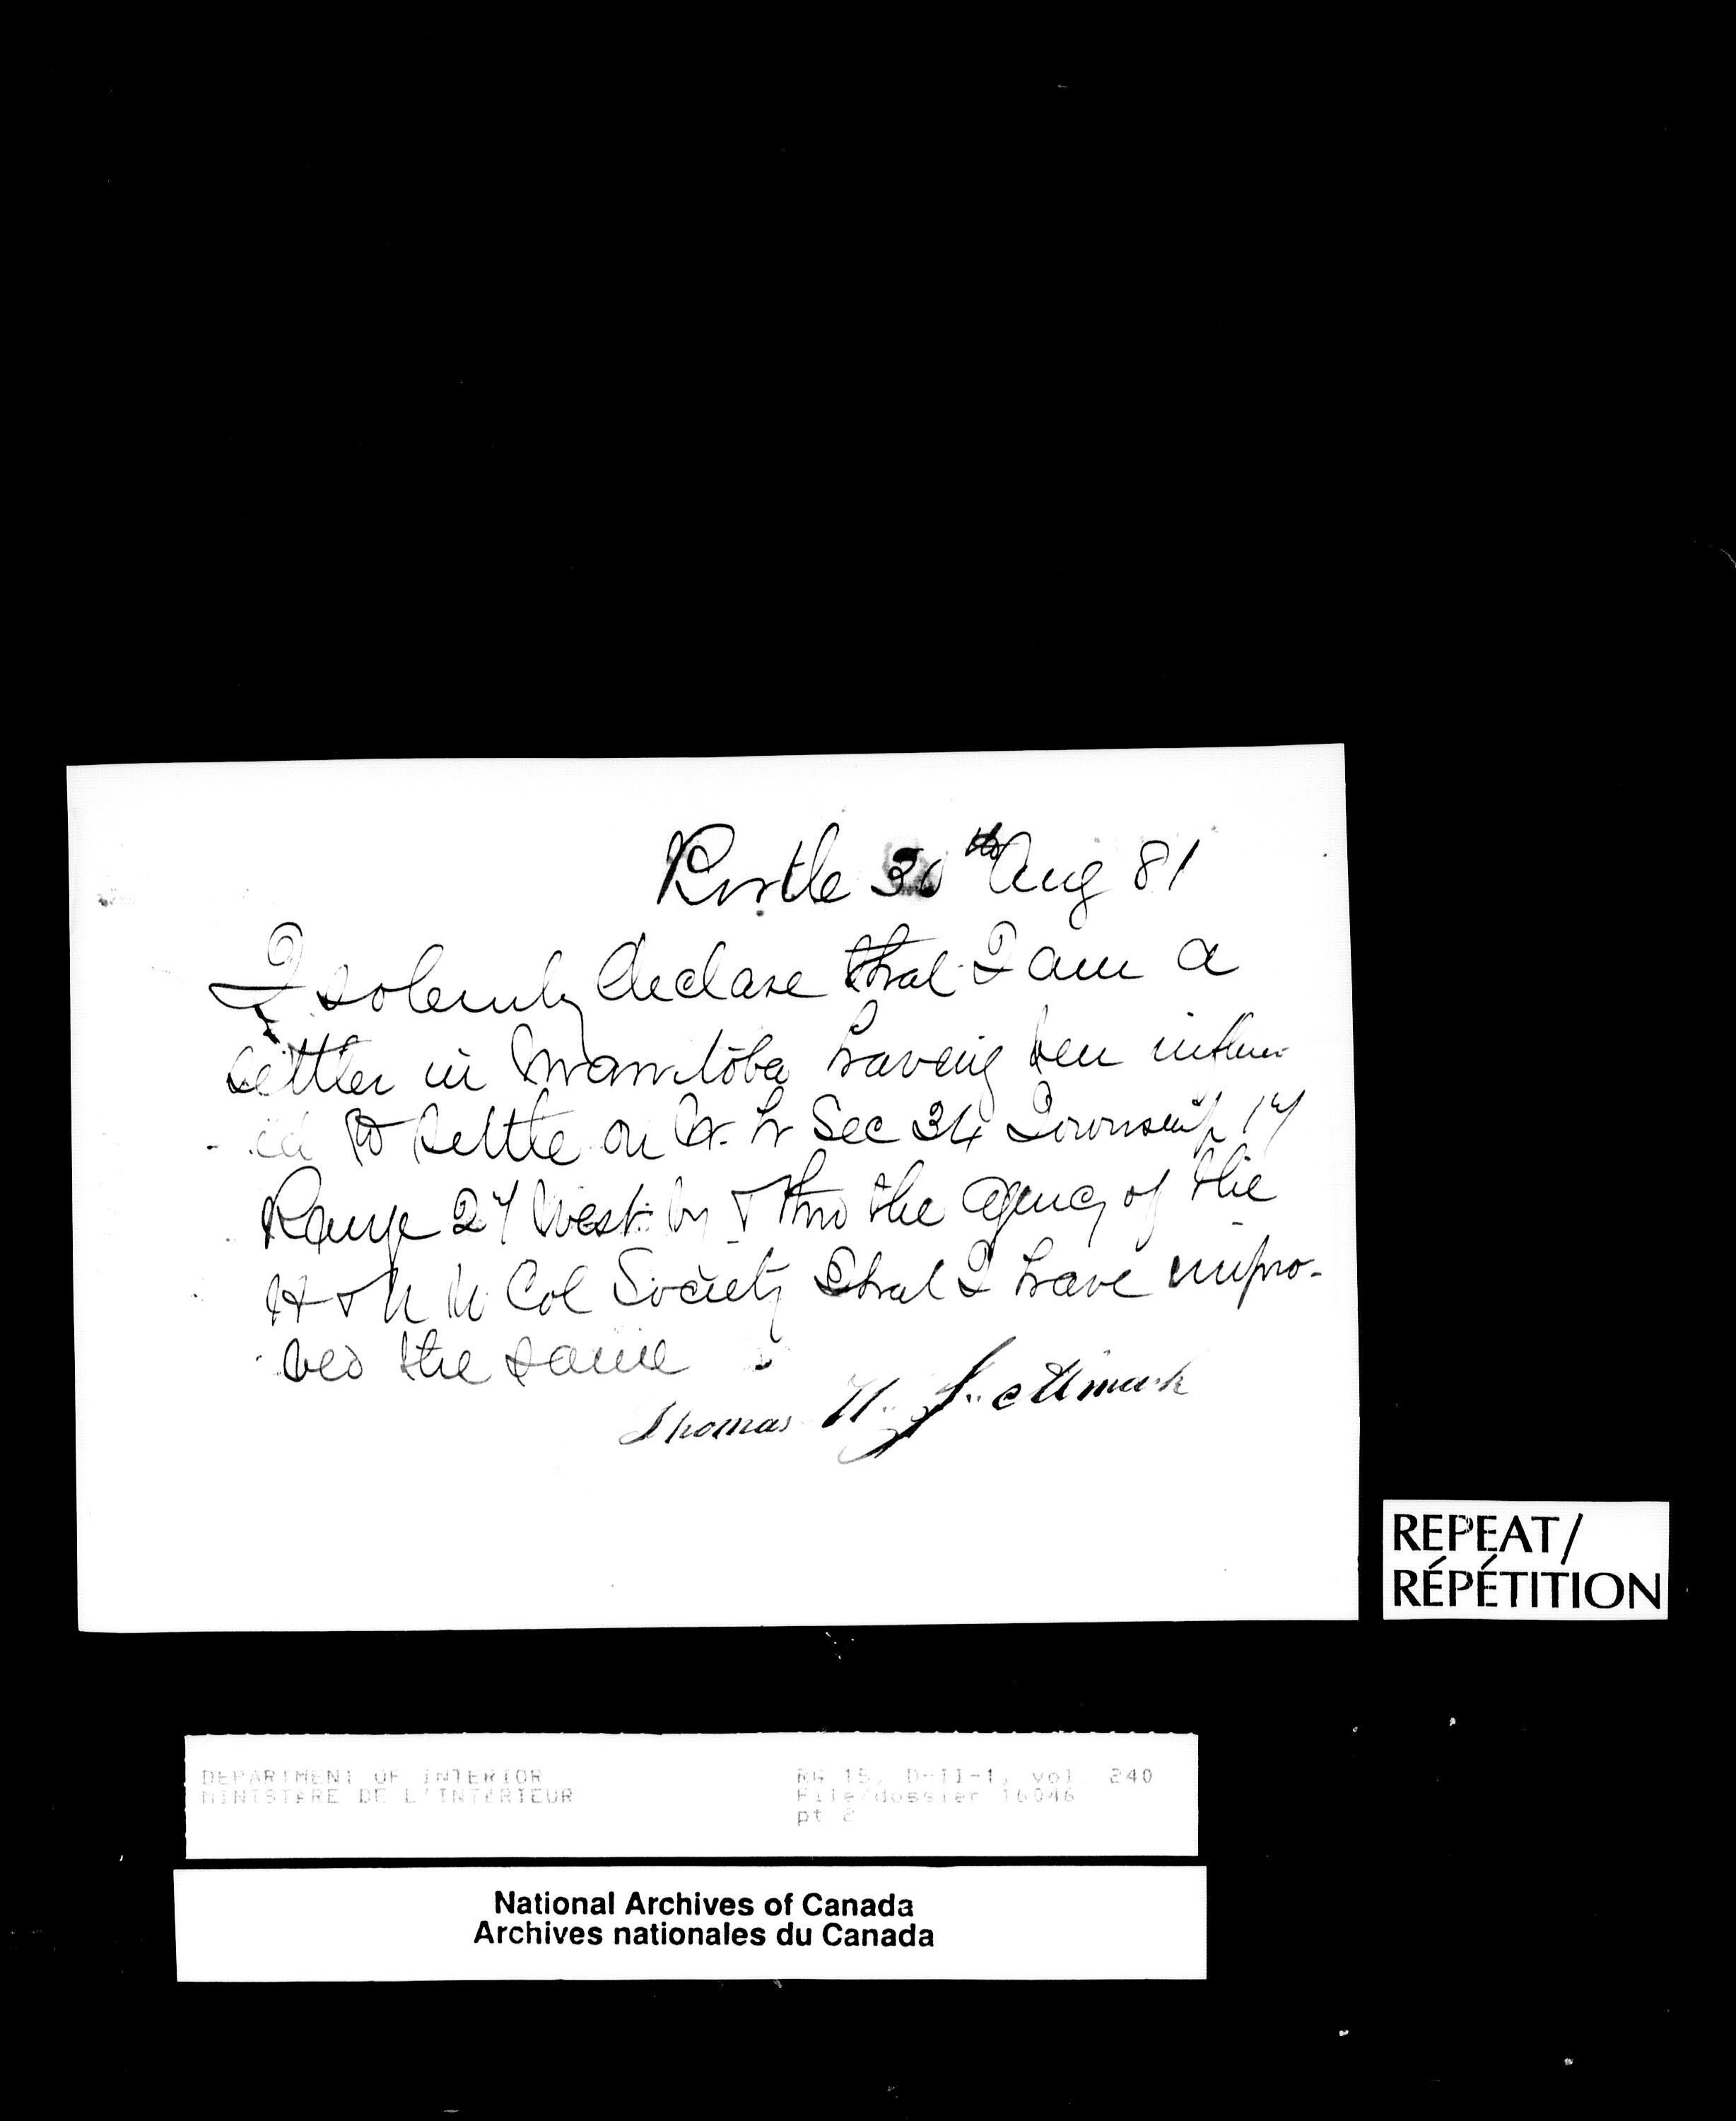 Birtle 30th Aug 81
I solemnly declare that I am a
settler in Manitoba having been influen
ced to settle on Sec 34 Township 17
Range 27 West by & thro the agency of the
H & N W Col Society & that I have impro-
ved the same
Thomas
REPEAT/
RÉPÉTITION
DEPARTMENT OF INTERIOR
MINISTÈRE DE L'INTÉRIEUR
RG 15, D-II-1, vol 240
File/dossier 16046
pt 2
National Archives of Canada
Archives nationales du Canada